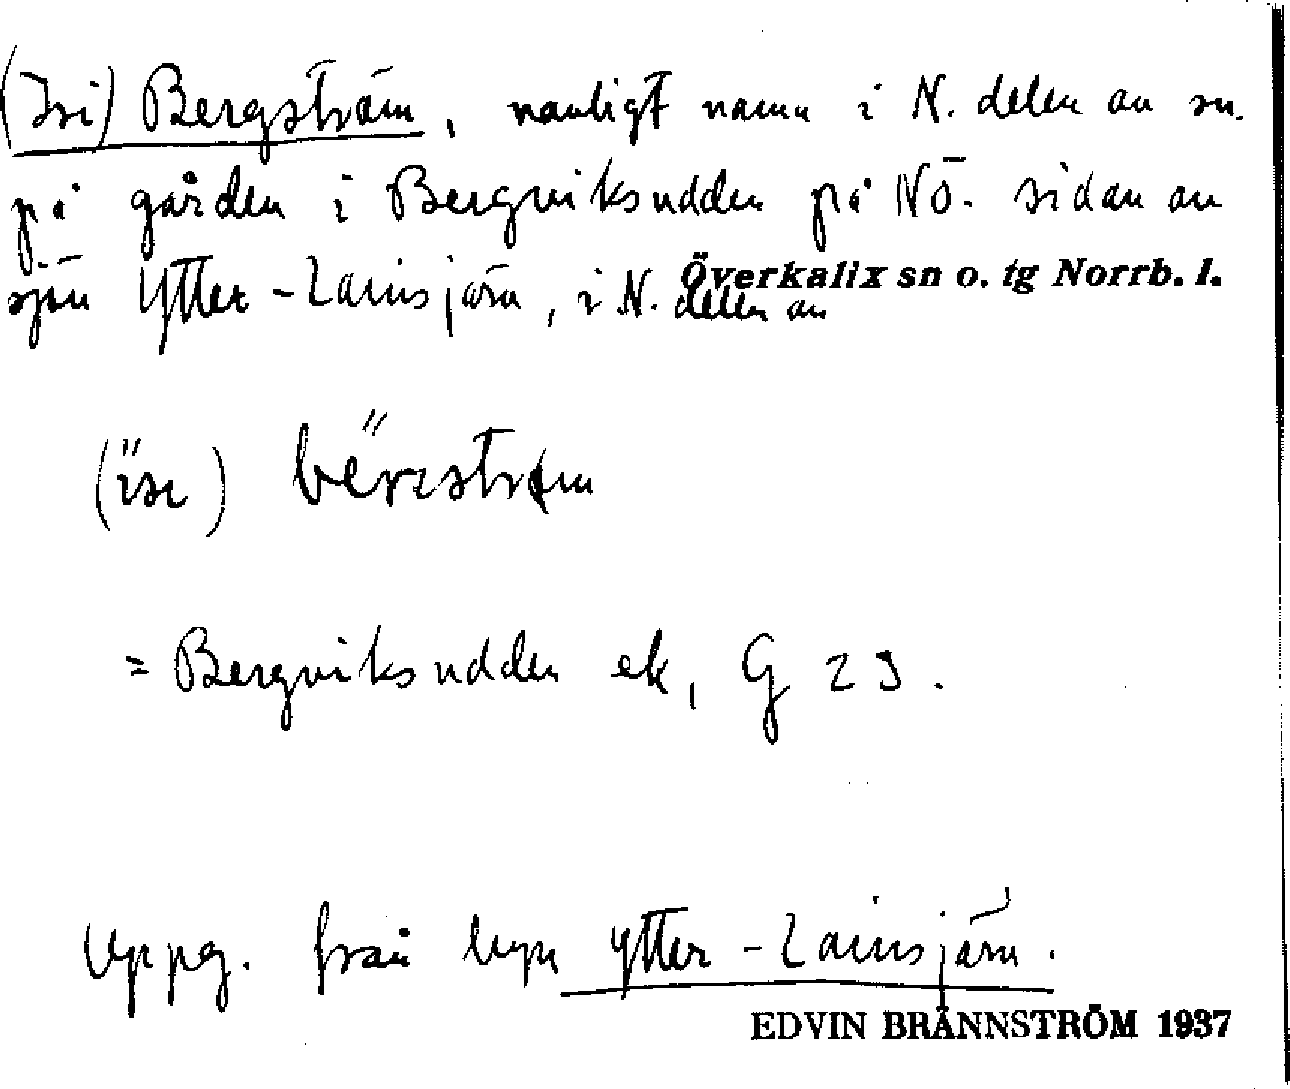 (Isi) Bergström, vanligt namn i N. delen av sn.
på gården i Bergviksudden på NÖ. sidan av
sjön Ytter-Lainsjärv, i N. delen av
Överkalix sn o. tg Norrb. l.
= Bergviksudden ek, G 23.
Uppg. från byn Ytter-Lainsjärv.
EDVIN BRÄNNSTRÖM 1937